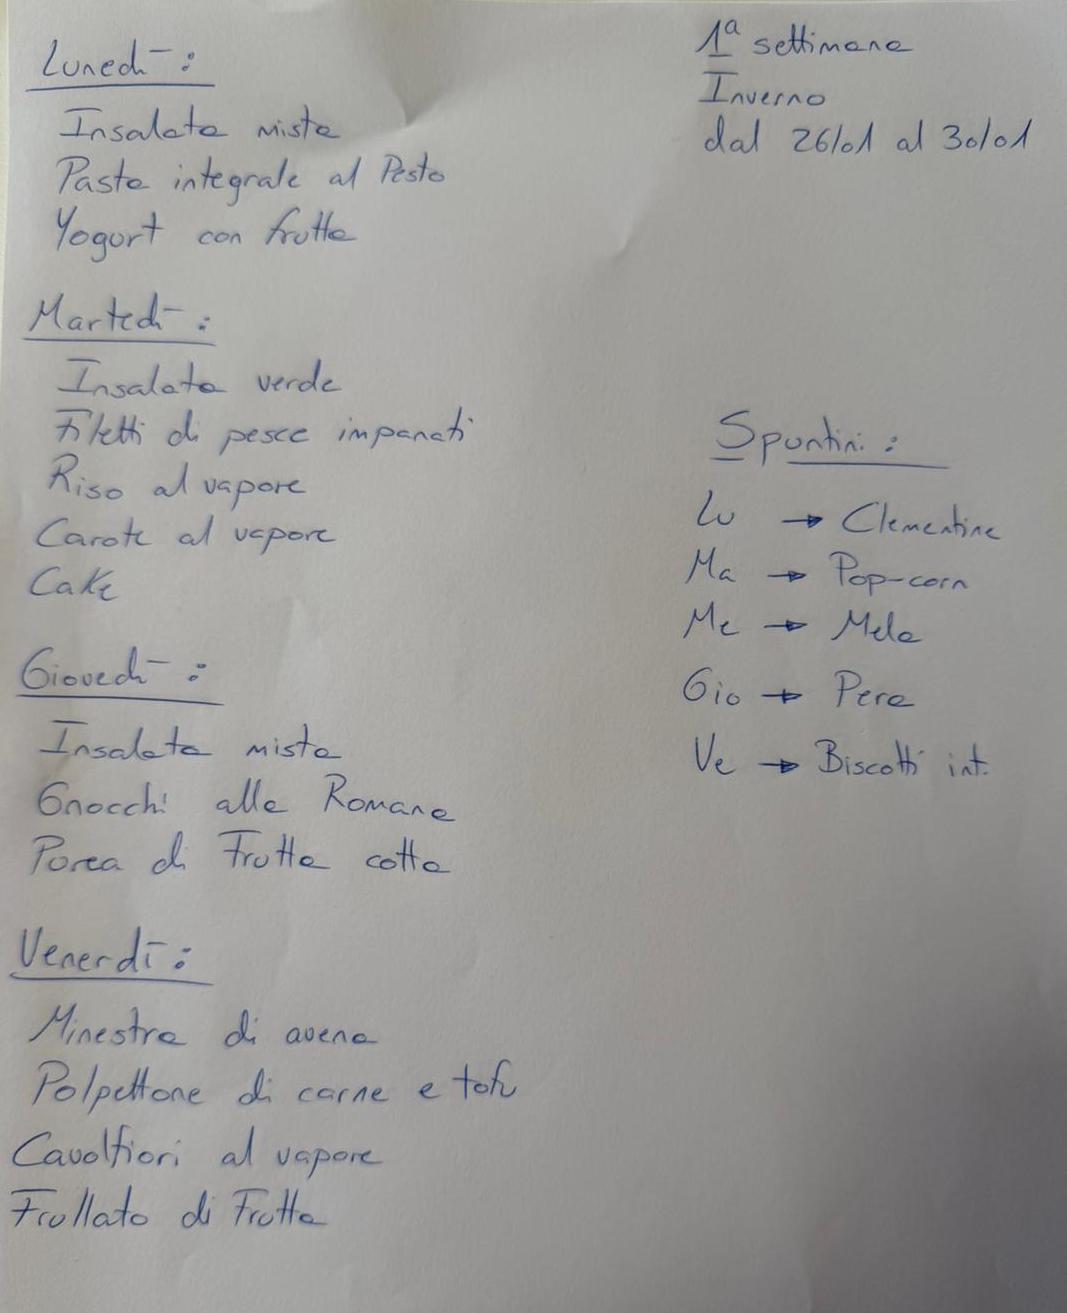 Lunedì:
Insalata mista
Pasta integrale al Pesto
Yogurt con frutta
Martedì:
Insalata verde
Filetti di pesce impanati
Riso al vapore
Carote al vapore
Cake
Giovedì:
Insalata mista
Gnocchi alla Romana
Purea di Frutta cotta
Venerdì:
Minestra di avena
Polpettone di carne e tofu
Cavolfiori al vapore
Frullato di Frutta
1ª settimana
Inverno
dal 26/01 al 30/01
Spuntini:
Lu → Clementine
Ma → Pop-corn
Me → Mela
Gio → Pera
Ve → Biscotti int.